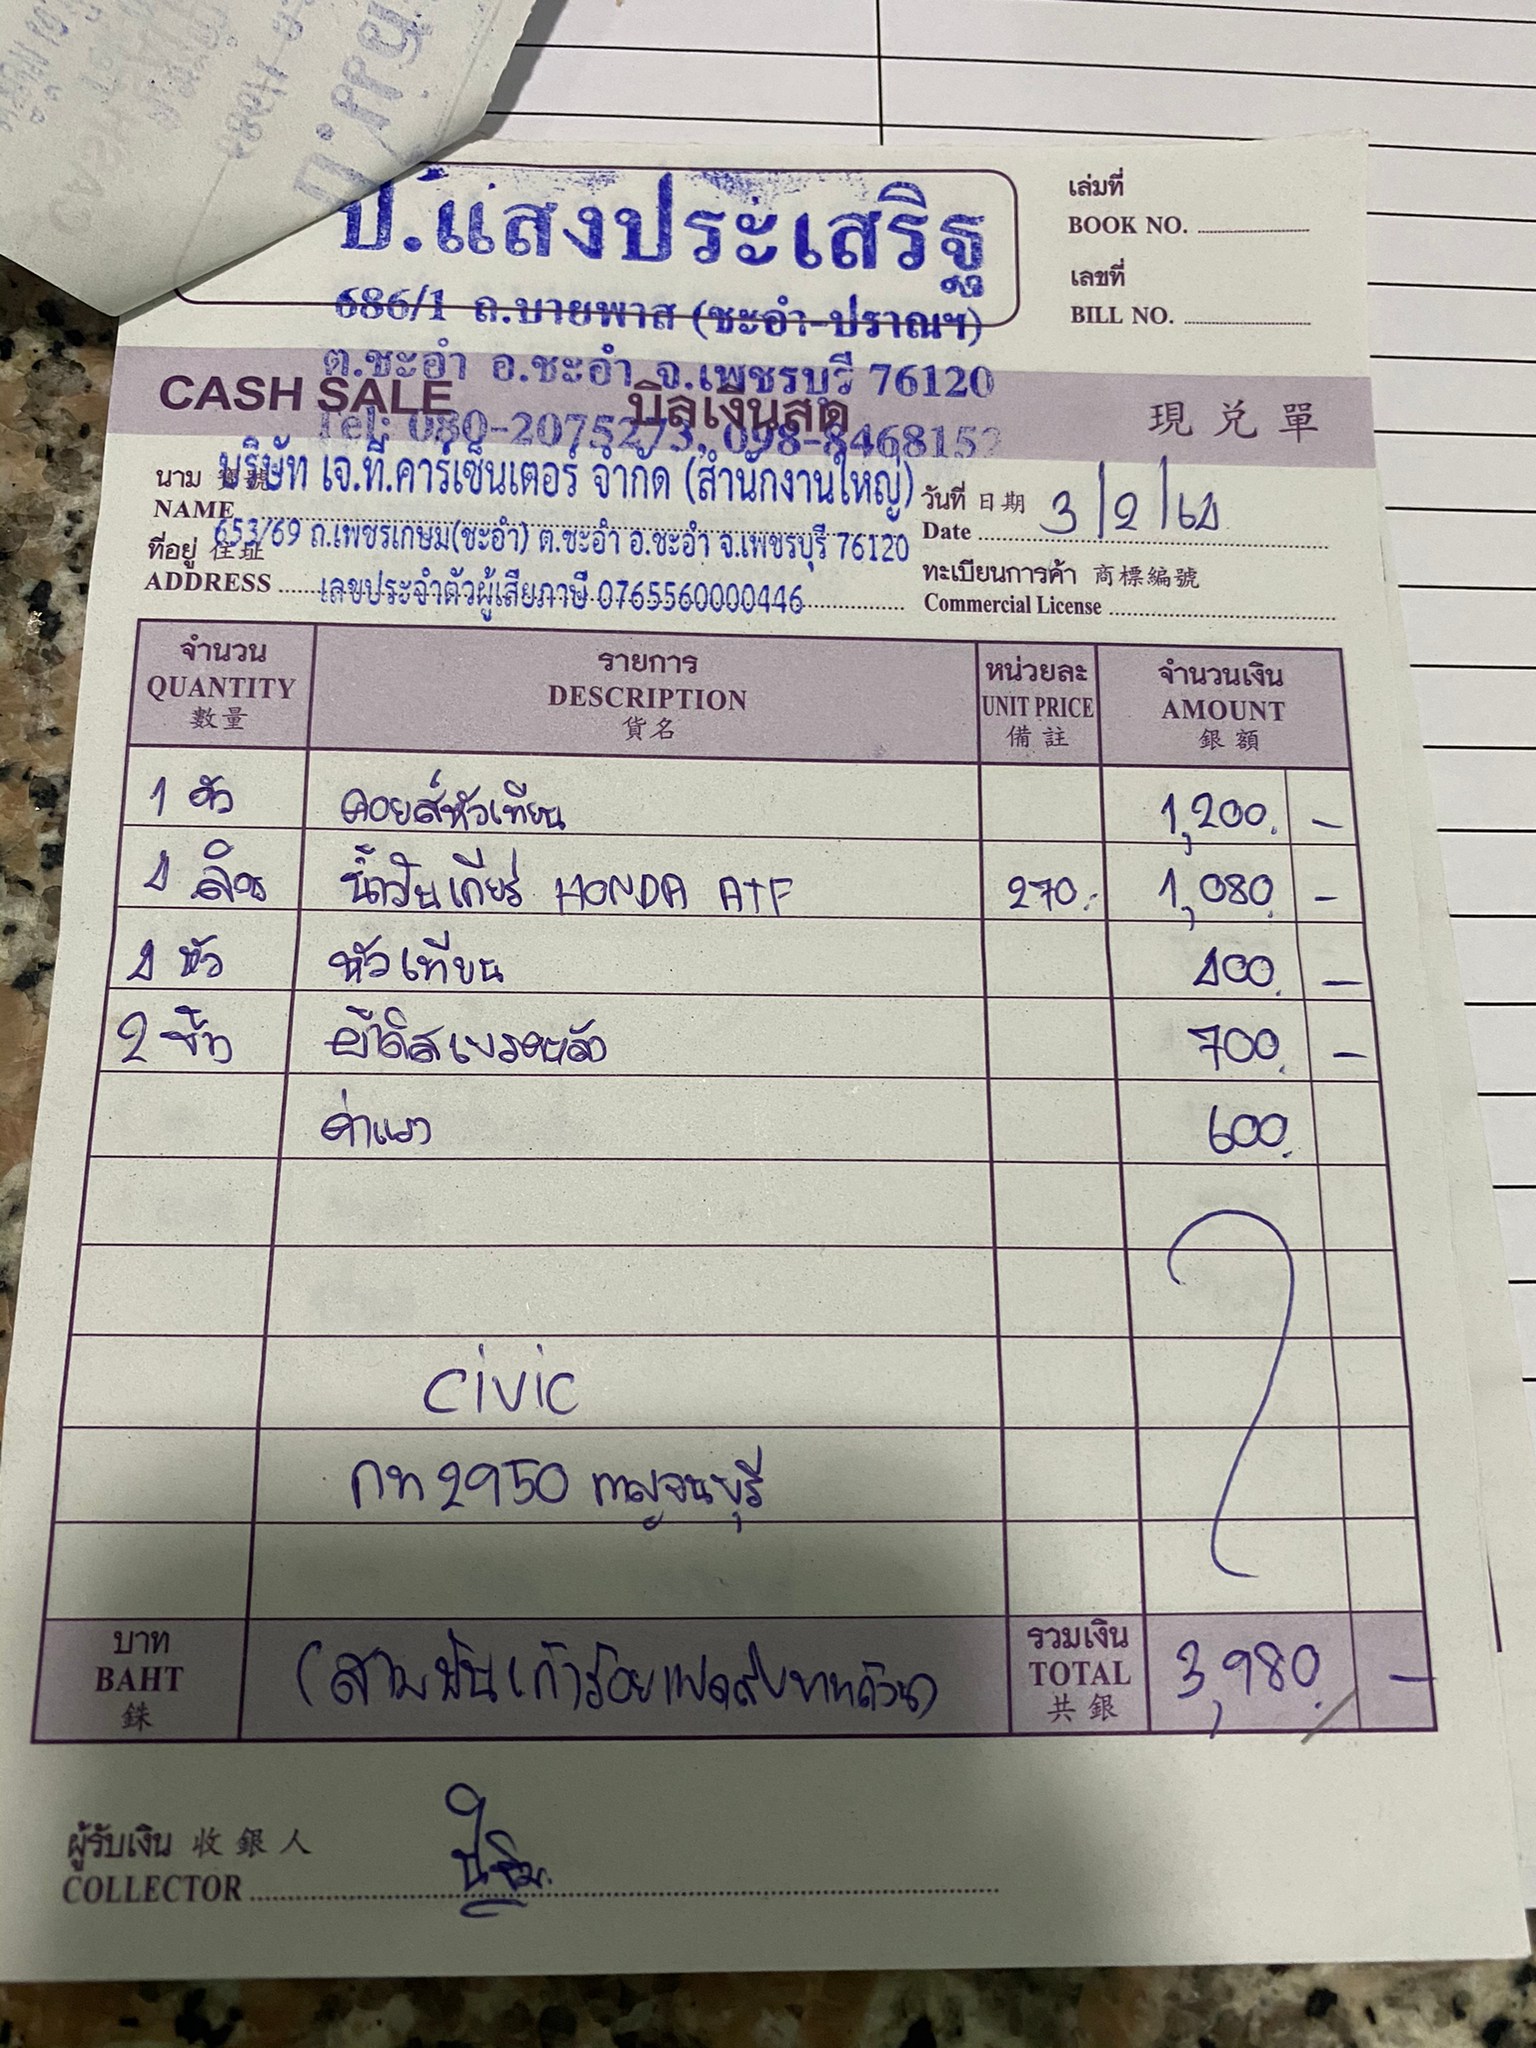 ป.แสงประเสริฐ
686/1 ถ.บายพาส (ชะอำ-ปราณฯ)
ต.ชะอำ อ.ชะอำ จ.เพชรบุรี 76120
Tel: 080-2075273, 098-8468152
เล่มที่
BOOK NO.
เลขที่
BILL NO.
CASH SALE บิลเงินสด 現兑單
นาม 寶號 บริษัท เจ.ที.คาร์เซ็นเตอร์ จำกัด (สำนักงานใหญ่)
NAME
วันที่ 日期 3/2/64
Date
ที่อยู่ 住址 653/69 ถ.เพชรเกษม(ชะอำ) ต.ชะอำ อ.ชะอำ จ.เพชรบุรี 76120
ADDRESS เลขประจำตัวผู้เสียภาษี 0765560000446
ทะเบียนการค้า 商標編號
Commercial License
จำนวน รายการ หน่วยละ จำนวนเงิน
QUANTITY DESCRIPTION UNIT PRICE AMOUNT
數量 貨名 備註 銀額
1 ตัว คอยล์หัวเทียน 1,200.-
4 ลิตร น้ำมันเกียร์ HONDA ATF 270.- 1,080.-
4 หัว หัวเทียน 400.-
2 ผ้าดิสเบรคหลัง 700.-
ค่าแรง 600.
civic
กท 2950 กาญจนบุรี
บาท รวมเงิน
BAHT (สามพันเก้าร้อยแปดสิบบาทถ้วน) TOTAL 3,980.-
銖 共銀
ผู้รับเงิน 收銀人
COLLECTOR